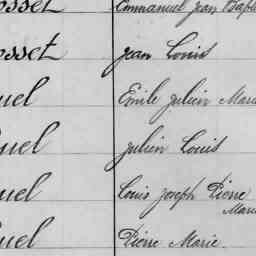 osset Emmanuel Jean Bap
osset Jean Louis
uel Emile Julien Marie
uel Julien Louis
uel Louis Joseph Pierre
Marie
uel Pierre Marie